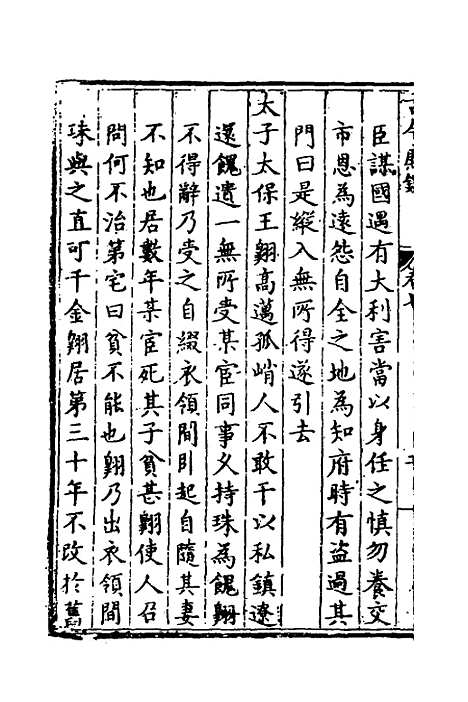 臣謀國遇有大利害當以身任之慎勿養交
市恩為遠怨自全之地為知府時有盜過其
門曰是縱入無所得遂引去
太子太保王翺高邁孤峭人不敢干以私鎮遼
還餽遺一無所受某宦同事久持珠為餽翺
不得辭乃受之自綴衣領間卧起自隨其妻
不知也居數年某宦死其子貧甚翺使人召
問何不治第宅曰貧不能也翺乃出衣領間
珠與之直可千金翺居第三十年不改於舊